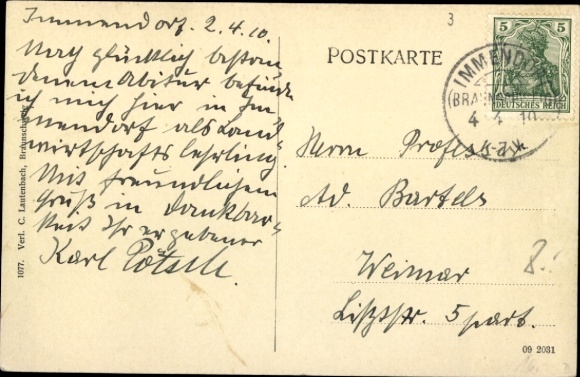 Immendorf. 2.4.10.
Nach glücklich bestan
denem Abitur befinde
ich mich hier in Im
mendorf als Land
wirtschaftslehrling.
Mit freundlichem
Gruß in Dankbar
keit Ihr ergebener
Karl
1077. Verl. C. Lautenbach, Braunschweig.
3
POSTKARTE
5 5
DEUTSCHES REICH
IMMENDORF
(BRAUNSCHWEIG)
4 4 10
Herrn Professor
Ad. Bartels
Weimar
Lisztstr. 5 part.
8.-
09 2031